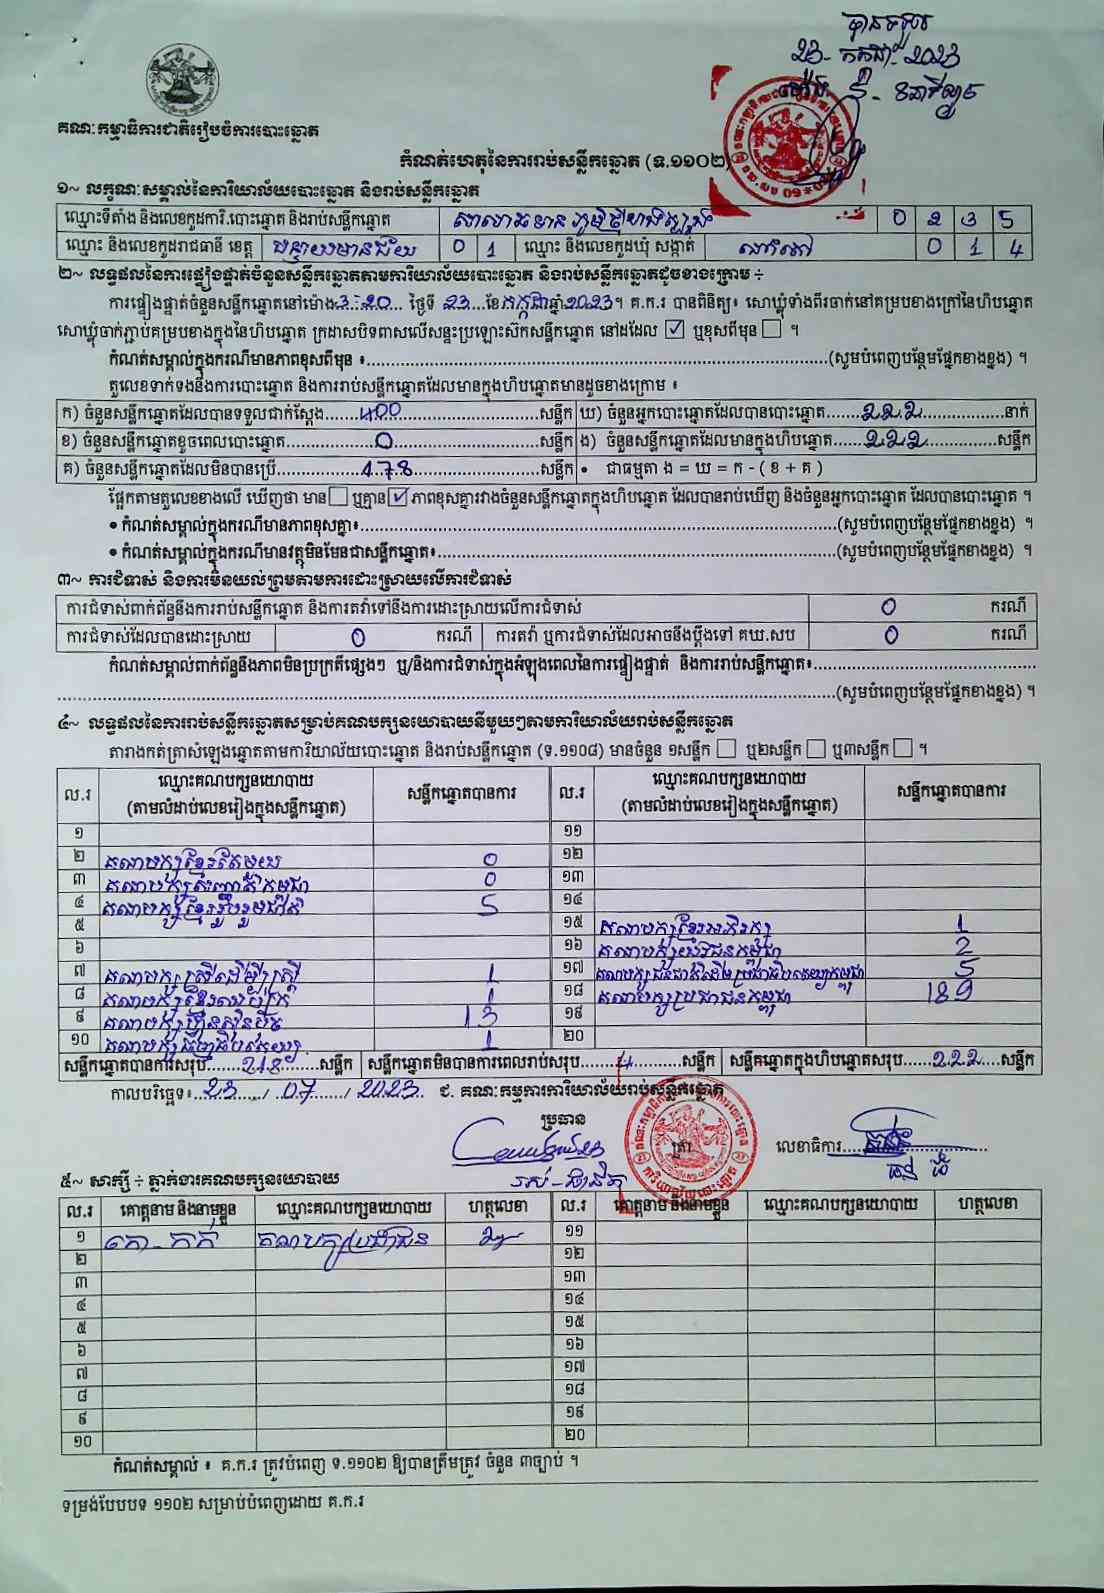 បានទទួល
23-កក្កដា-2023
គណៈកម្មាធិការជាតិរៀបចំការបោះឆ្នោត
កំណត់ហេតុនៃការរាប់សន្លឹកឆ្នោត (ទ.១១០២)
១~ លក្ខណៈសម្គាល់នៃការិយាល័យបោះឆ្នោត និងរាប់សន្លឹកឆ្នោត
ឈ្មោះទីតាំង និងលេខកូដការិ.បោះឆ្នោត និងរាប់សន្លឹកឆ្នោត 0 2 3 5
ឈ្មោះ និងលេខកូដរាជធានី ខេត្ត បន្ទាយមានជ័យ 0 1 ឈ្មោះ និងលេខកូដឃុំ សង្កាត់ 0 1 4
២~ លទ្ធផលនៃការផ្ទៀងផ្ទាត់ចំនួនសន្លឹកឆ្នោតតាមការិយាល័យបោះឆ្នោត និងរាប់សន្លឹកឆ្នោតដូចខាងក្រោម ÷
ការផ្ទៀងផ្ទាត់ចំនួនសន្លឹកឆ្នោតនៅម៉ោង 3:20 ថ្ងៃទី 23 ខែ កក្កដា ឆ្នាំ 2023 ។ គ.ក.រ បានពិនិត្យ៖ សោឃ្លុំទាំងពីរចាក់នៅគម្របខាងក្រៅនៃហិបឆ្នោត
សោឃ្លុំចាក់ភ្ជាប់គម្របខាងក្នុងនៃហិបឆ្នោត ក្រដាសបិទពាសលើសន្ទះប្រឡោះស៊កសន្លឹកឆ្នោត នៅដដែល ☑ ឬខុសពីមុន ☐ ។
កំណត់សម្គាល់ក្នុងករណីមានភាពខុសពីមុន ៖........(សូមបំពេញបន្ថែមផ្នែកខាងខ្នង) ។
តួលេខទាក់ទងនឹងការបោះឆ្នោត និងការរាប់សន្លឹកឆ្នោតដែលមានក្នុងហិបឆ្នោតមានដូចខាងក្រោម ៖
ក) ចំនួនសន្លឹកឆ្នោតដែលបានទទួលជាក់ស្តែង 400 សន្លឹក ឃ) ចំនួនអ្នកបោះឆ្នោតដែលបានបោះឆ្នោត 222 នាក់
ខ) ចំនួនសន្លឹកឆ្នោតខូចពេលបោះឆ្នោត 0 សន្លឹក ង) ចំនួនសន្លឹកឆ្នោតដែលមានក្នុងហិបឆ្នោត 222 សន្លឹក
គ) ចំនួនសន្លឹកឆ្នោតដែលមិនបានប្រើ 178 សន្លឹក • ជាធម្មតា ង = ឃ = ក - ( ខ + គ )
ផ្អែកតាមតួលេខខាងលើ ឃើញថា មាន ☐ ឬគ្មាន ☑ ភាពខុសគ្នារវាងចំនួនសន្លឹកឆ្នោតក្នុងហិបឆ្នោត ដែលបានរាប់ឃើញ និងចំនួនអ្នកបោះឆ្នោត ដែលបានបោះឆ្នោត ។
• កំណត់សម្គាល់ក្នុងករណីមានភាពខុសគ្នា៖........(សូមបំពេញបន្ថែមផ្នែកខាងខ្នង) ។
• កំណត់សម្គាល់ក្នុងករណីមានវត្ថុមិនមែនជាសន្លឹកឆ្នោត៖........(សូមបំពេញបន្ថែមផ្នែកខាងខ្នង) ។
៣~ ការជំទាស់ និងការមិនយល់ព្រមតាមការដោះស្រាយលើការជំទាស់
ការជំទាស់ពាក់ព័ន្ធនឹងការរាប់សន្លឹកឆ្នោត និងការតវ៉ាទៅនឹងការដោះស្រាយលើការជំទាស់ 0 ករណី
ការជំទាស់ដែលបានដោះស្រាយ 0 ករណី ការតវ៉ា ឬការជំទាស់ដែលអាចនឹងប្តឹងទៅ គឃ.សប 0 ករណី
កំណត់សម្គាល់ពាក់ព័ន្ធនឹងភាពមិនប្រក្រតីផ្សេងៗ ឬ/និងការជំទាស់ក្នុងអំឡុងពេលនៃការផ្ទៀងផ្ទាត់ និងការរាប់សន្លឹកឆ្នោត៖........
........(សូមបំពេញបន្ថែមផ្នែកខាងខ្នង) ។
៤~ លទ្ធផលនៃការរាប់សន្លឹកឆ្នោតសម្រាប់គណបក្សនយោបាយនីមួយៗតាមការិយាល័យរាប់សន្លឹកឆ្នោត
តារាងកត់ត្រាសំឡេងឆ្នោតតាមការិយាល័យបោះឆ្នោត និងរាប់សន្លឹកឆ្នោត (ទ.១១០៨) មានចំនួន ១សន្លឹក ☐ ឬ២សន្លឹក ☐ ឬ៣សន្លឹក ☐ ។
ល.រ ឈ្មោះគណបក្សនយោបាយ (តាមលំដាប់លេខរៀងក្នុងសន្លឹកឆ្នោត) សន្លឹកឆ្នោតបានការ ល.រ ឈ្មោះគណបក្សនយោបាយ (តាមលំដាប់លេខរៀងក្នុងសន្លឹកឆ្នោត) សន្លឹកឆ្នោតបានការ
១ ១១
២ គណបក្សខ្មែរតែមួយ 0 ១២
៣ គណបក្សសញ្ជាតិកម្ពុជា 0 ១៣
៤ គណបក្សខ្មែររួបរួមជាតិ 5 ១៤
៥ ១៥ គណបក្សខ្មែរអភិរក្ស 1
៦ ១៦ គណបក្សយុវជនកម្ពុជា 2
៧ គណបក្សស្រ្តីដើម្បីស្រ្តី 1 ១៧ គណបក្សជនជាតិដើមប្រជាធិបតេយ្យកម្ពុជា 5
៨ 1 ១៨ គណបក្សប្រជាជនកម្ពុជា 189
៩ គណបក្សហ្វ៊ុនស៊ិនប៉ិច 13 ១៩
១០ គណបក្សធម្មាធិបតេយ្យ 1 ២០
សន្លឹកឆ្នោតបានការសរុប 218 សន្លឹក សន្លឹកឆ្នោតមិនបានការពេលរាប់សរុប 4 សន្លឹក សន្លឹកឆ្នោតក្នុងហិបឆ្នោតសរុប 222 សន្លឹក
កាលបរិច្ឆេទ៖ 23 / 07 / 2023 ជ. គណៈកម្មការការិយាល័យរាប់សន្លឹកឆ្នោត
ប្រធាន
ត្រា លេខាធិការ
៥~ សាក្សី ÷ ភ្នាក់ងារគណបក្សនយោបាយ
ល.រ គោត្តនាម និងនាមខ្លួន ឈ្មោះគណបក្សនយោបាយ ហត្ថលេខា ល.រ គោត្តនាម និងនាមខ្លួន ឈ្មោះគណបក្សនយោបាយ ហត្ថលេខា
១ កែ-កក់ គណបក្សប្រជាជន ១១
២ ១២
៣ ១៣
៤ ១៤
៥ ១៥
៦ ១៦
៧ ១៧
៨ ១៨
៩ ១៩
១០ ២០
កំណត់សម្គាល់ ៖ គ.ក.រ ត្រូវបំពេញ ទ.១១០២ ឱ្យបានត្រឹមត្រូវ ចំនួន ៣ច្បាប់ ។
ទម្រង់បែបបទ ១១០២ សម្រាប់បំពេញដោយ គ.ក.រ